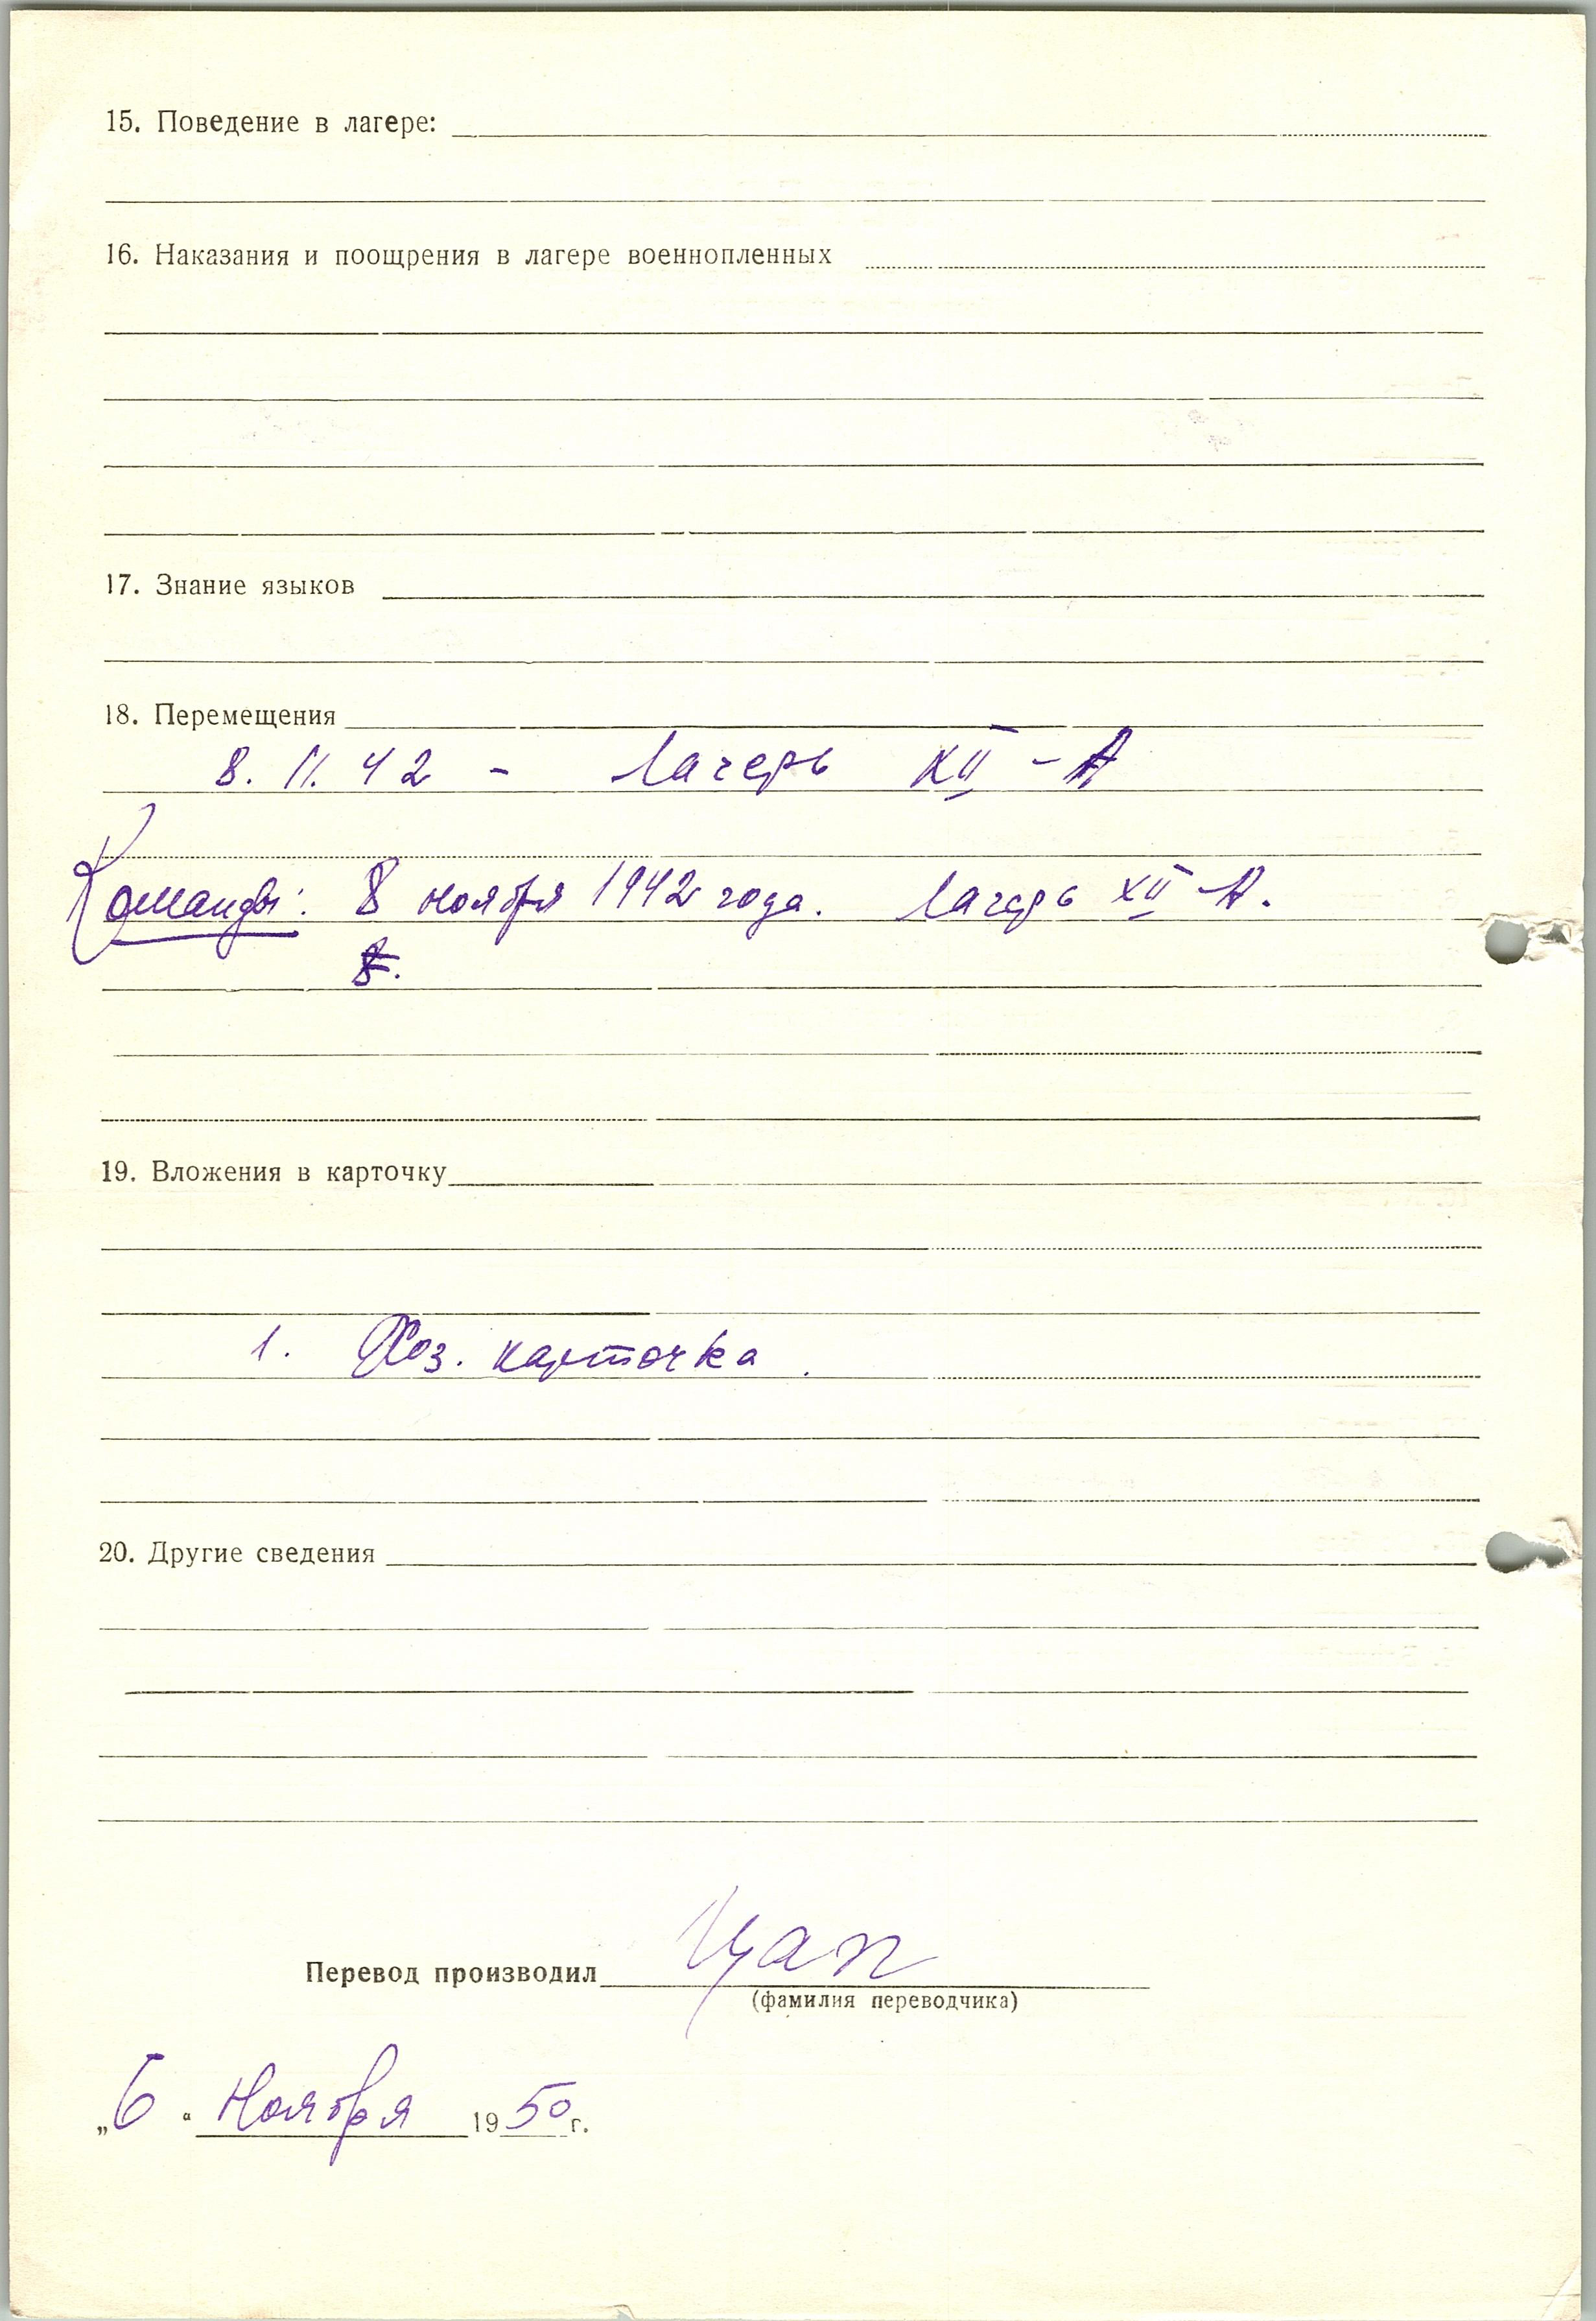 15. Поведение в лагере:
16. Наказания и поощрения в лагере военнопленных
17. Знание языков
18. Перемещения
8. 11. 42 - Лагерь XII - А
Команды: 8 ноября 1942 года. Лагерь XII - А.
19. Вложения в карточку
1. Хоз. карточка.
20. Другие сведения
Перевод производил Цап
(фамилия переводчика)
„6“ Ноября 1950 г.